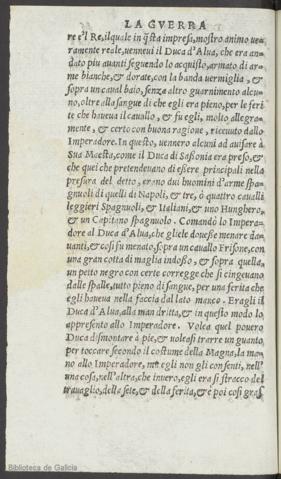 LA GVERRA
re e'l Re, ilquale in q̃sta impresa, mostro animo ue-
ramente reale, uenneui il Duca d'Alua, che era an-
dato piu auanti seguendo lo acquisto, armato di ar-
me bianche, & dorate, con la banda uermiglia, &
sopra un caual baio, senza altro guarnimento alcu-
no, oltre alla sangue di che egli era pieno, per le feri-
te che haueua il cauallo, & fu egli, molto allegra-
mente, & certo con buona ragione, riceuuto dallo
Imperadore. In questo, uennero alcuni ad auisare à
Sua Maesta, come il Duca di Sassonia era preso, &
che quei che pretendeuano di essere principali nella
presura del detto, erano dui huomini d'arme spa-
gnuoli di quelli di Napoli, & tre, ò quattro caualli
leggieri Spagnuoli, & Italiani, & uno Hunghero,
& un Capitano spagnuolo. Comando lo Impera-
dore al Duca d'Alua, che gliele douesse menare da-
uanti, & cosi fu menato, sopra un cauallo Frisone, con
una gran cotta di maglia indosso, & sopra quella,
un petto negro con certe corregge che si cingeuano
dalle spalle, tutto pieno di sangue, per una ferita che
egli haueua nella faccia dal lato manco. Eragli il
Duca d'Alua, alla man dritta, & in questo modo lo
appresento allo Imperadore. Volea quel pouero
Duca dismontare à pie, & uoleasi trarre un guanto,
per toccare secondo il costume della Magna, la ma-
no allo Imperadore, ma egli non gli consenti, nell'
una cosa, nell'altra, che inuero, egli era si stracco del
trauaglio, della sete, & della ferita, & è poi cosi gras
Biblioteca de Galicia